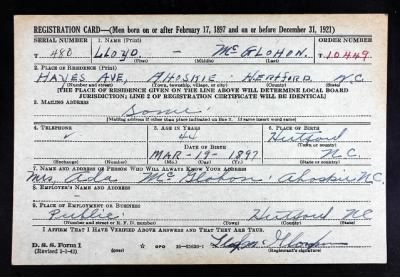 REGISTRATION CARD—(Men born on or after February 17, 1897 and on or before December 31, 1921)
SERIAL NUMBER 1. NAME (Print) ORDER NUMBER
T 480 LLOYD — McGLOHON. T10449
(First) (Middle) (Last)
2. PLACE OF RESIDENCE (Print)
HAYES AVE, AHOSKIE HERTFORD N.C.
(Number and street) (Town, township, village, or city) (County) (State)
[THE PLACE OF RESIDENCE GIVEN ON THE LINE ABOVE WILL DETERMINE LOCAL BOARD
JURISDICTION; LINE 2 OF REGISTRATION CERTIFICATE WILL BE IDENTICAL]
3. MAILING ADDRESS
Same
(Mailing address if other than place indicated on line 2. If same insert word same)
4. TELEPHONE 5. AGE IN YEARS 6. PLACE OF BIRTH
44 Hertford
DATE OF BIRTH (Town or county)
MAR—19—1897 N.C.
(Exchange) (Number) (Mo.) (Day) (Yr.) (State or country)
7. NAME AND ADDRESS OF PERSON WHO WILL ALWAYS KNOW YOUR ADDRESS
Mrs. Ada McGlohon Ahoskie N.C.
8. EMPLOYER'S NAME AND ADDRESS
9. PLACE OF EMPLOYMENT OR BUSINESS
Public Hertford NC
(Number and street or R. F. D. number) (Town) (County) (State)
I AFFIRM THAT I HAVE VERIFIED ABOVE ANSWERS AND THAT THEY ARE TRUE.
D. S. S. Form 1 GPO
(Revised 2-1-42) (Registrant's signature)